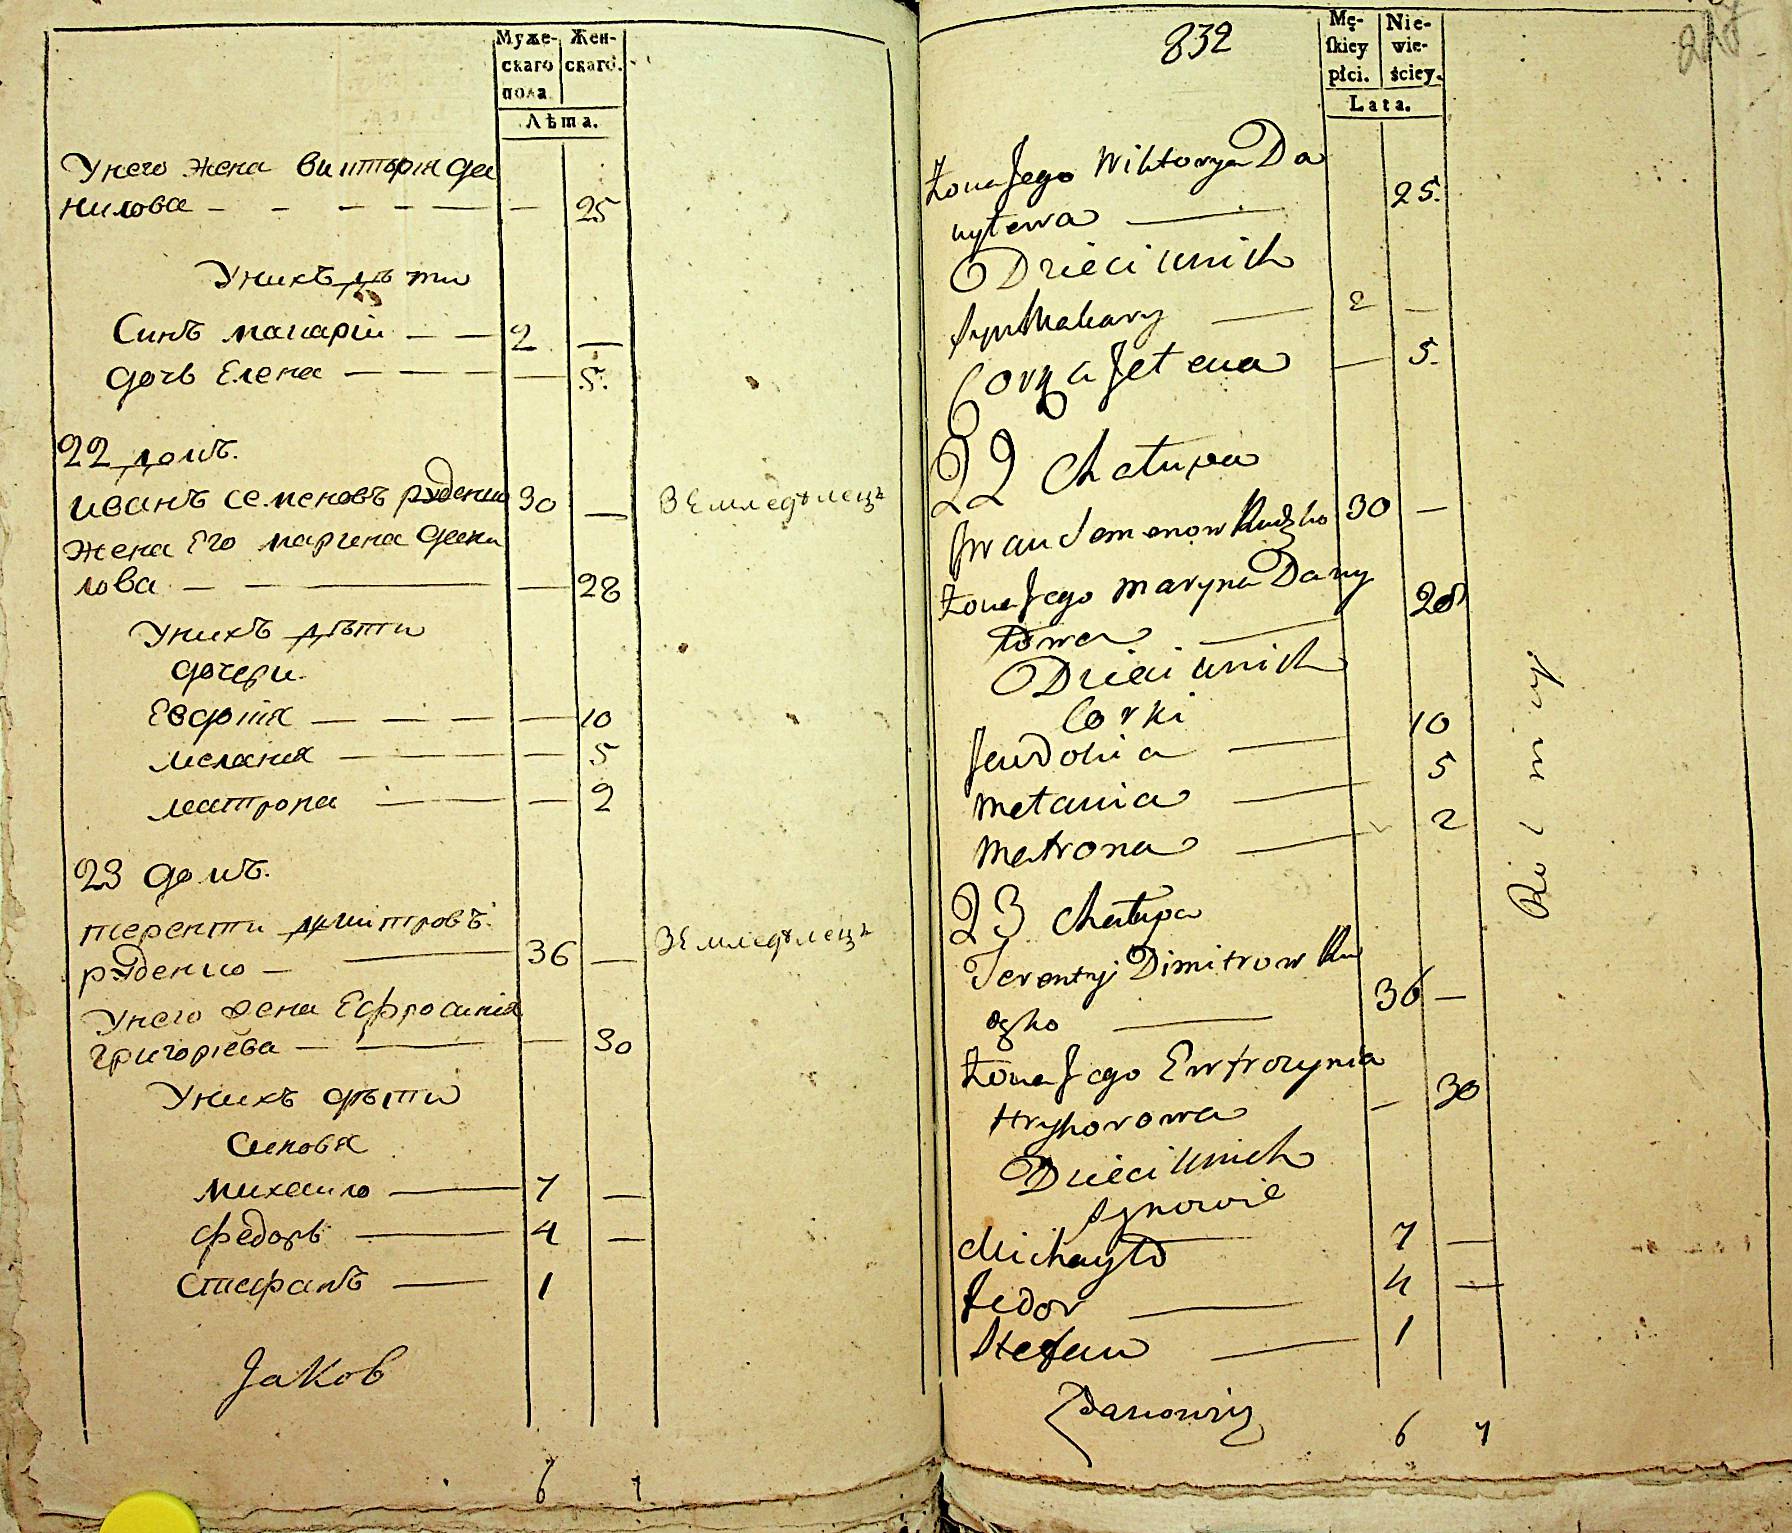 Муже- Жен-
скаго скаго.
пола
Лѣта.
Унего жена викторія Дан
нилова - - - - - - 25
Унихъ дѣти
Синъ макарій - - 2 —
дочь Елена - - - - — 5.
22 домъ.
иванъ семеновъ руденко 30 — Земледѣлецъ
жена Его марина Дани
лова - — — 28
Унихъ дѣти
дочери.
Евдокія - - - - — 10
мелания - - - — 5
матрона - - - — 2
23 домъ.
терентій димитровъ
руденко - — 36 — Земледѣлецъ
Унего жена Ефросинія
григоріева - — — 30
Унихъ дѣти
синовя
михаило — 7 —
федоръ — 4 —
стефанъ — 1
Jakob
6 7
832
Mę- Nie-
skiey wie-
płci. ściey.
Lata.
Żona Jego Wiktorya Da
nyłowa — 25.
Dzieci unich
syn Makary — 2 —
Corka Jełena — 5.
22 Chatupa
Iwan Semenow Rudzko 30 —
Żona Jego Maryna Dany
łowa — 28
Dzieci unich
Corki
Jewdokia — 10
Mełania — 5
Matrona — 2
23 Chatupa
Terentyi Dimitrow Ru
dzko — 36 —
Żona Jego Ewfrozynia
Hryhorowa — 30
Dzieci unich
synowie
Michayło 7 —
Fedor — 4 —
Stefan — 1
Rolniczy
6 7